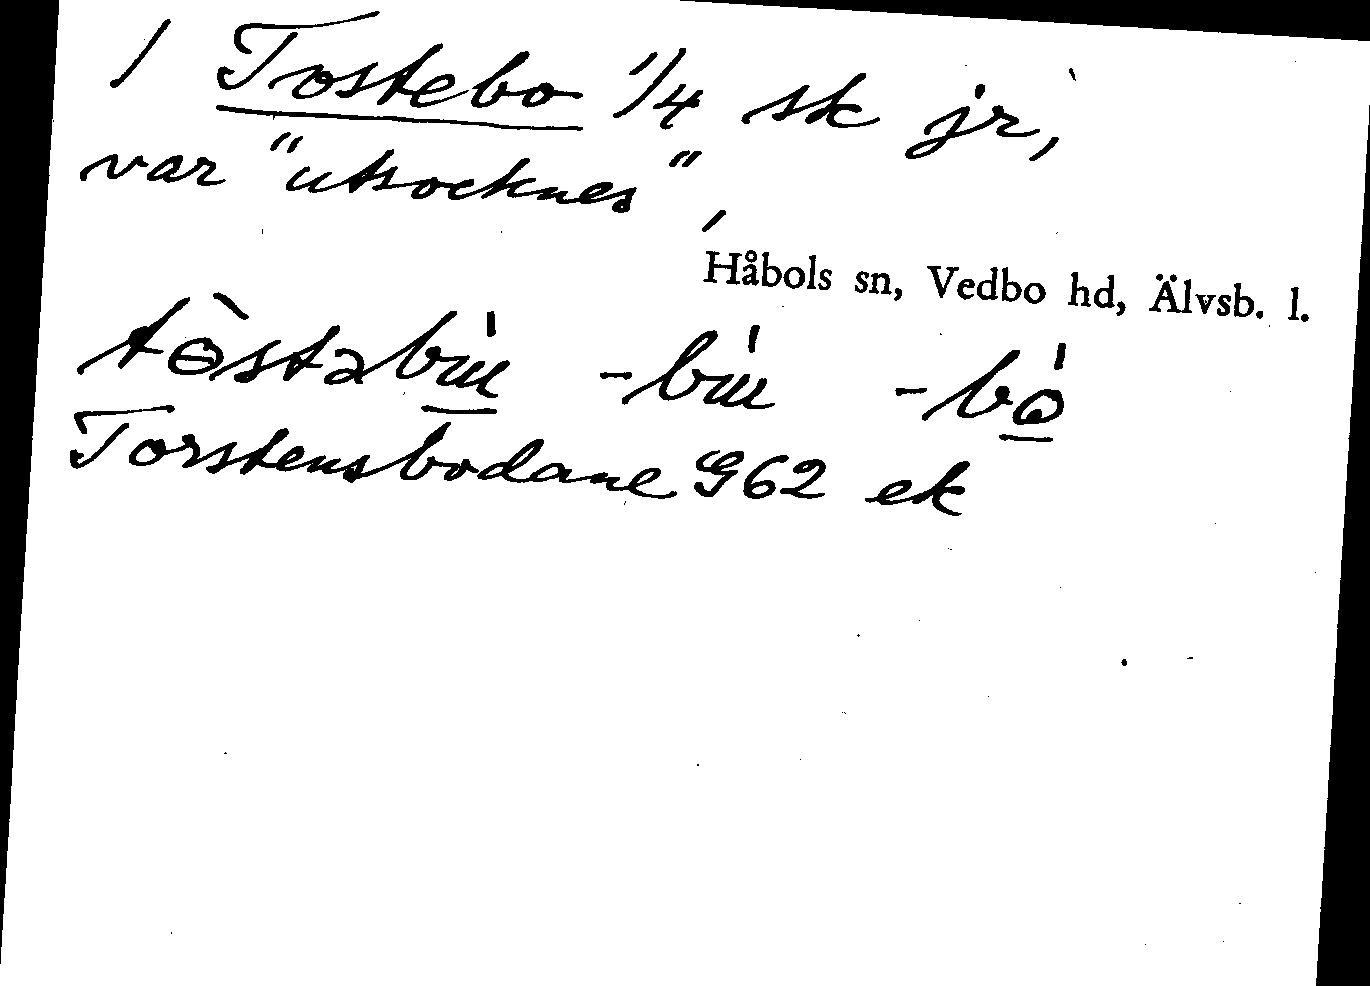 / Tostebo 1/4 sk jr,
var "utsocknes",
Håbols sn, Vedbo hd, Älvsb. l.
tɵ̀stabɯ́ -bɯ́ -bó̱
Torstensbodane G62 ek